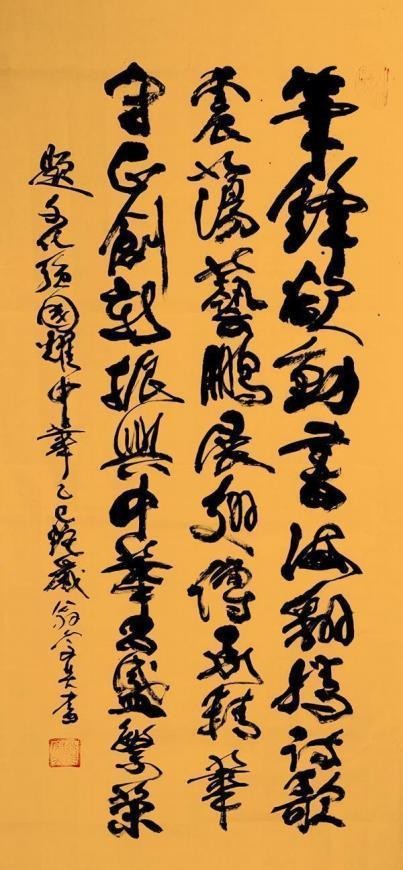 筆鋒動書海翻騰詩歌
震蕩藝鵬展翅傳承精華
守正創新振興中華昌盛繁榮
題文化強國耀中華乙巳歲翁書